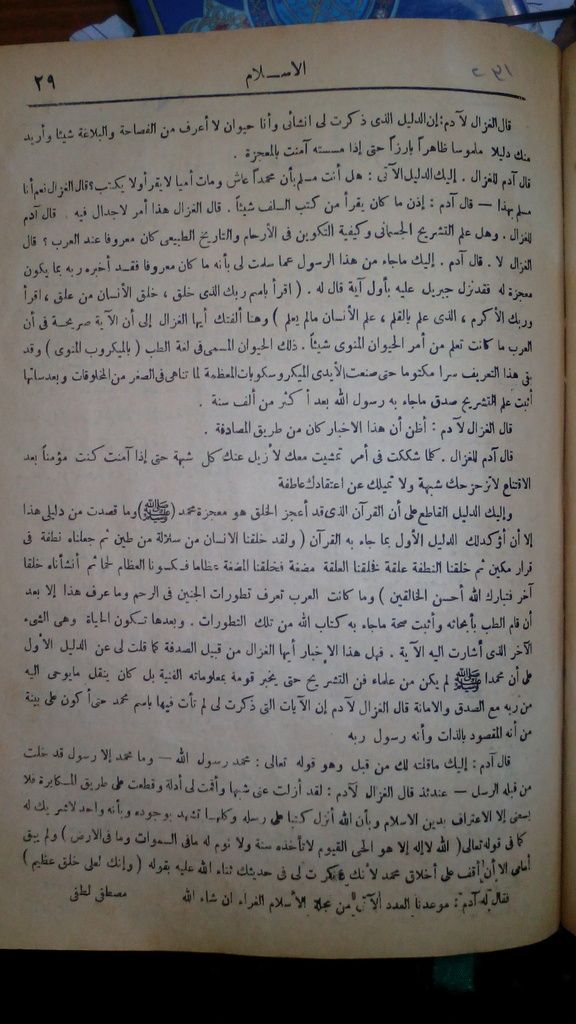 الاسلام
٢٩
قال الغزال لآدم: إن الدليل الذى ذكرت لى انشائى وأنا حيوان لا أعرف من الفصاحة والبلاغة شيئا وأريد
منك دليلا ملموسا ظاهراً بارزاً حتى إذا مسسته آمنت بالمعجزة .
قال آدم للغزال . إليك الدليل الآتى : هل أنت مسلم بأن محمداً عاش ومات أميا لا يقرأ ولا يكتب؟ قال الغزال نعم أنا
مسلم بهذا — قال آدم : إذن ما كان يقرأ من كتب السلف شيئاً . قال الغزال هذا أمر لا جدال فيه . قال آدم
للغزال . وهل علم التشريح الجسمانى وكيفية التكوين فى الأرحام والتاريخ الطبيعى كان معروفا عند العرب ؟ قال
الغزال لا . قال آدم . إليك ماجاء من هذا الرسول عما سلمت لى بأنه ما كان معروفا فقد أخبره ربه بما يكون
معجزة له فقد نزل جبريل عليه بأول آية قال له . ( اقرأ باسم ربك الذى خلق ، خلق الأنسان من علق ، اقرأ
وربك الأكرم ، الذى علم بالقلم ، علم الأنسان مالم يعلم ) وهنا ألفتك أيها الغزال إلى أن الآية صريحة فى أن
العرب ما كانت تعلم من أمر الحيوان المنوى شيئاً . ذلك الحيوان المسمى فى لغة الطب ( بالميكروب المنوى ) وقد
بقى هذا التعريف سرا مكتوما حتى صنعت الأيدى الميكروسكوبات المعظمة لما تناهى فى الصغر من المخلوقات وبعدساتها
أثبت علم التشريح صدق ماجاء به رسول الله بعد أكثر من ألف سنة .
قال الغزال لآدم : أظن أن هذا الاخبار كان من طريق المصادفة .
قال آدم للغزال . كلما شككت فى أمر تمشيت معك لأزيل عنك كل شبهة حتى إذا آمنت كنت مؤمناً بعد
الاقتناع لاتزحزحك شبهة ولا تميلك عن اعتقادك عاطفة
وإليك الدليل القاطع على أن القرآن الذى قد أعجز الخلق هو معجزة محمد (ﷺ) وما قصدت من دليلى هذا
إلا أن أؤكد لك الدليل الأول بما جاء به القرآن ( ولقد خلقنا الانسان من سلالة من طين ثم جعلناه نطفة فى
قرار مكين ثم خلقنا النطفة علقة فخلقنا العلقة مضغة فخلقنا المضغة عظاما فكسونا العظام لحما ثم أنشأناه خلقا
آخر فتبارك الله أحسن الخالقين ) وما كانت العرب تعرف تطورات الجنين فى الرحم وما عرف هذا إلا بعد
أن قام الطب بأبحاثه وأثبت صحة ماجاء به كتاب الله من تلك التطورات . وبعدها تكون الحياة وهى الشىء
الآخر الذى أشارت اليه الآية . فهل هذا الاخبار أيها الغزال من قبيل الصدفة كما قلت لى عن الدليل الأول
على أن محمدا ﷺ لم يكن من علماء فن التشريح حتى يخبر قومه بمعلوماته الفنية بل كان ينقل مايوحى اليه
من ربه مع الصدق والامانة قال الغزال لآدم إن الآيات التى ذكرت لى لم تأت فيها باسم محمد حتى أكون على بينة
من أنه المقصود بالذات وأنه رسول ربه
قال آدم : إليك ماقلته لك من قبل وهو قوله تعالى : محمد رسول الله — وما محمد إلا رسول قد خلت
من قبله الرسل — عندئذ قال الغزال لآدم : لقد أزلت عنى شبها وأقمت لى أدلة وقطعت على طريق المكابرة فلا
يسعنى إلا الاعتراف بدين الاسلام وبأن الله أنزل كتبا على رسله وكلها تشهد بوجوده وبأنه واحد لاشريك له
كما فى قوله تعالى ( الله لا إله إلا هو الحى القيوم لا تأخذه سنة ولا نوم له مافى السموات وما فى الارض ) ولم يبق
أمامى إلا أن أقف على أخلاق محمد لأنك ذكرت لى فى حديثك ثناء الله عليه بقوله ( وإنك لعلى خلق عظيم )
فقال له آدم : موعدنا العدد الآتى من مجلة الأسلام الغراء ان شاء الله
مصطفى لطفى